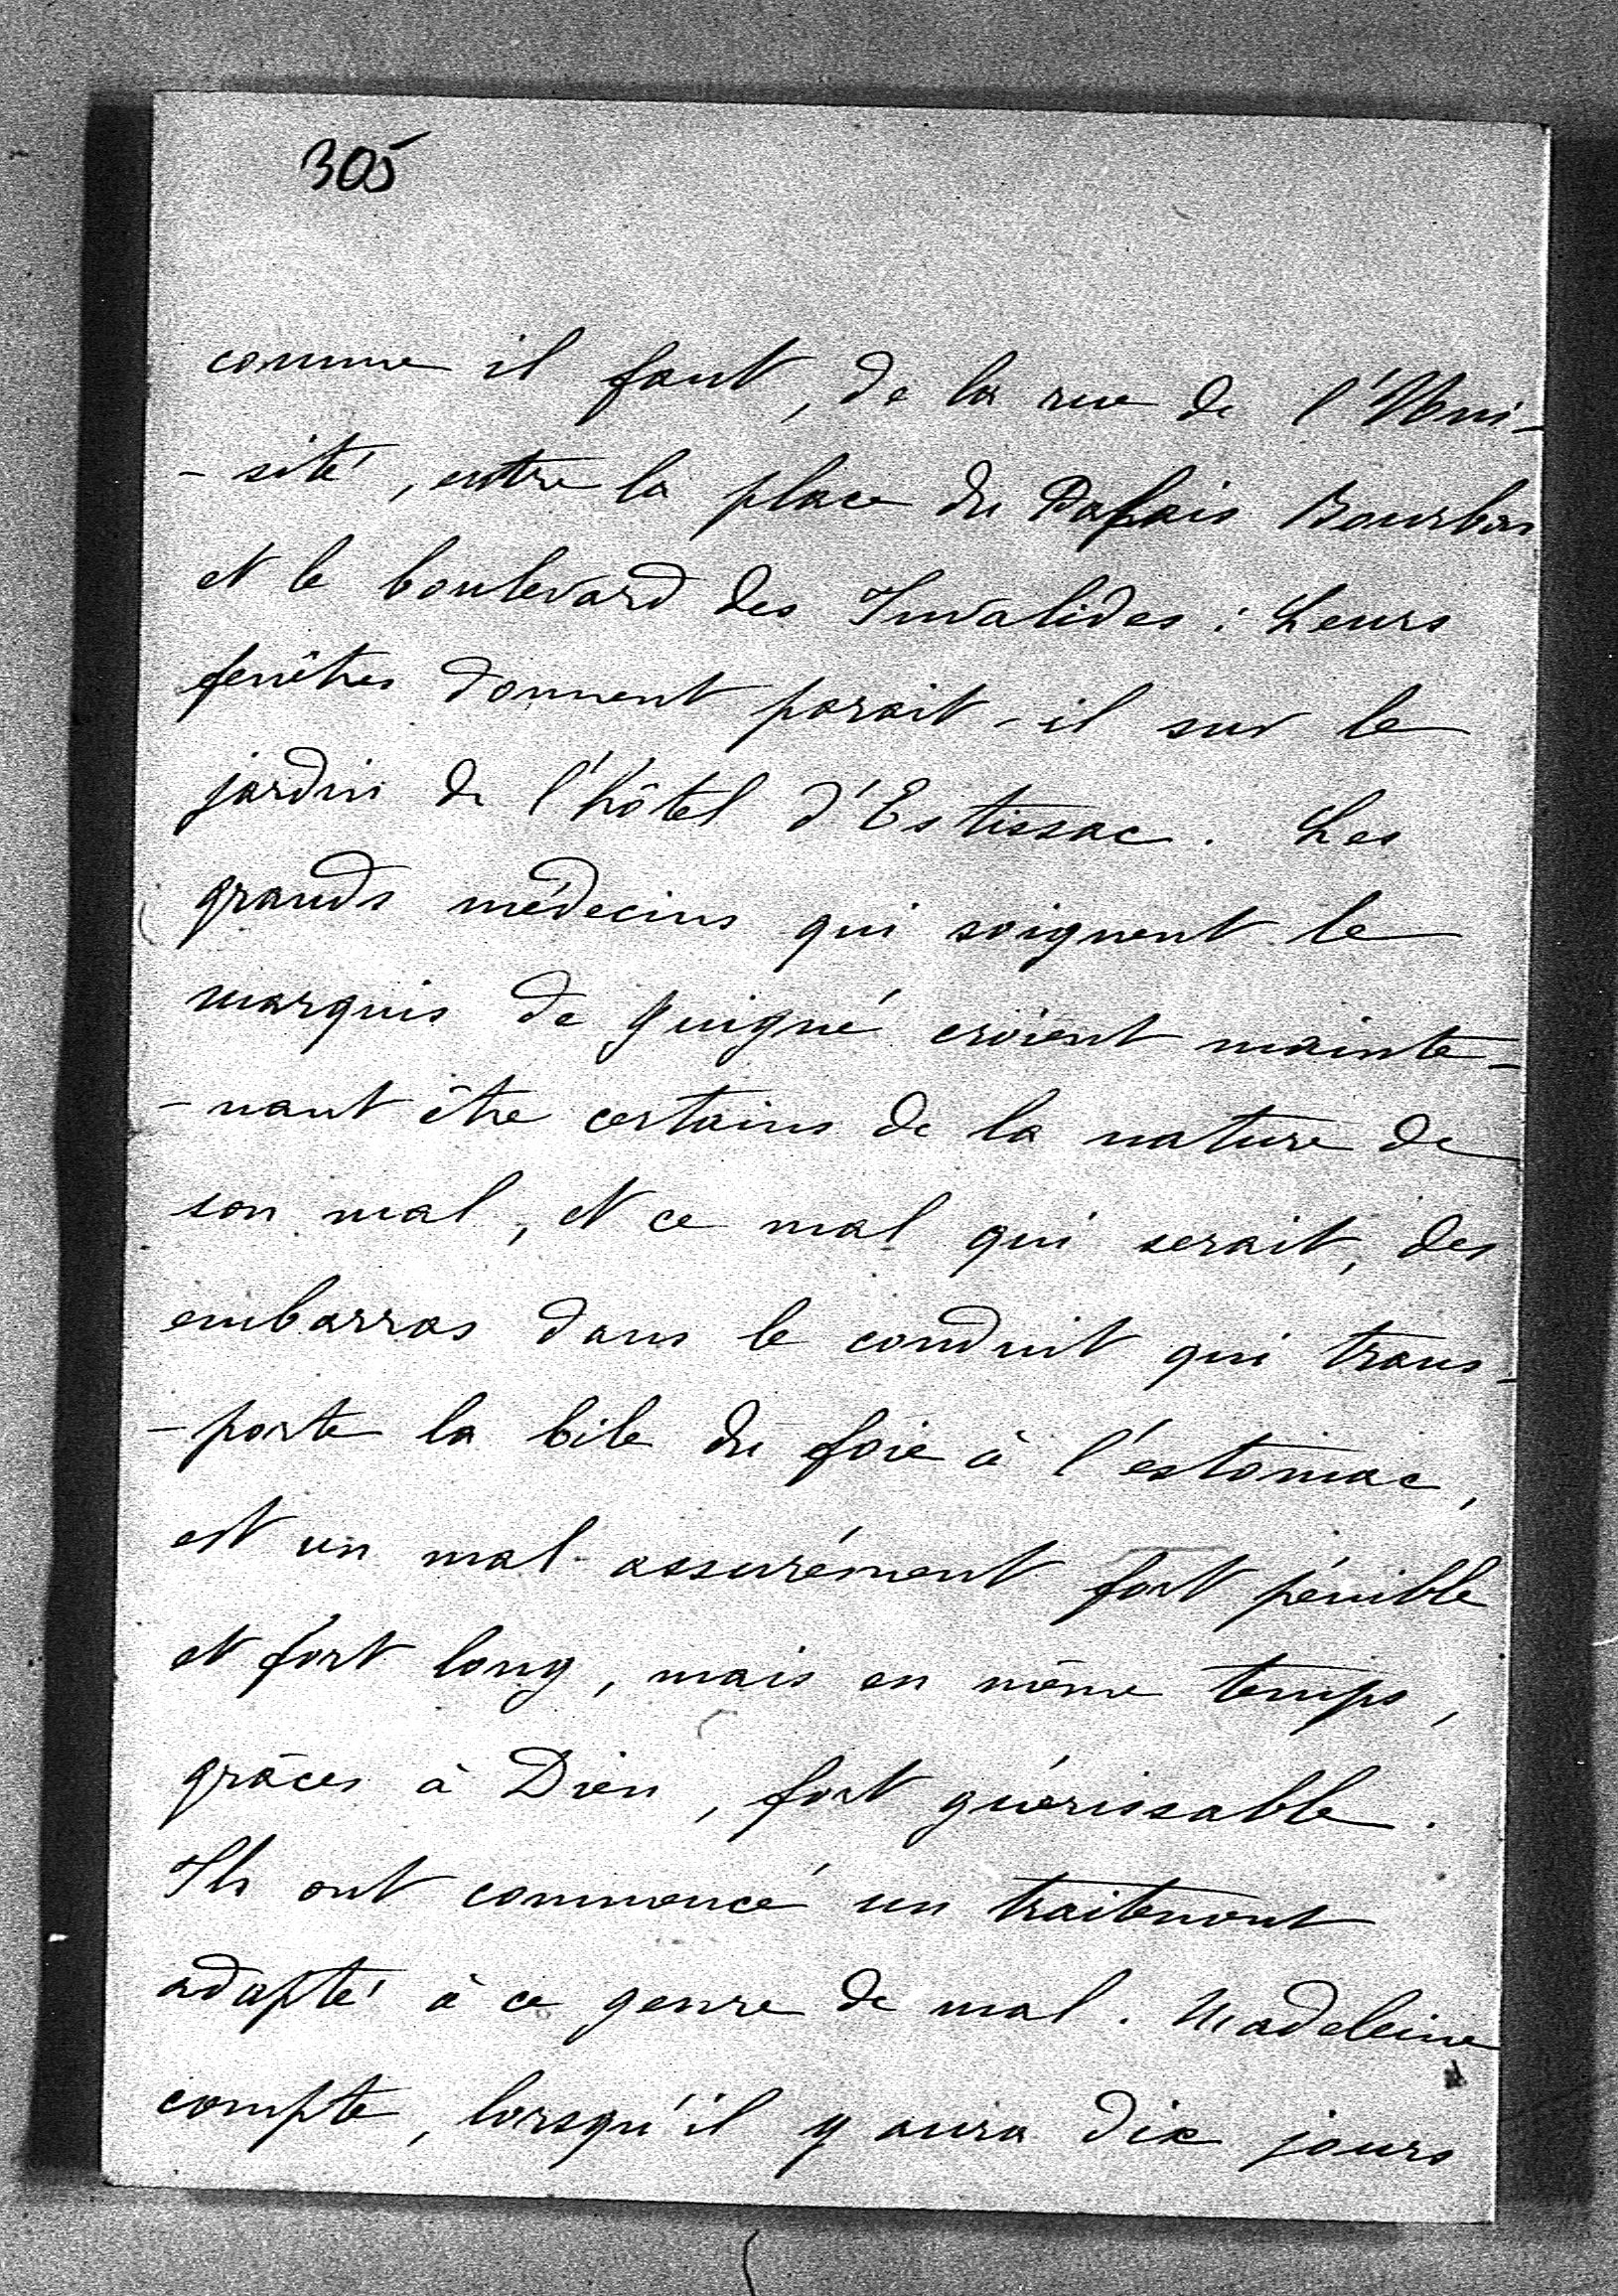 305
comme il faut, de la rue de l'Uni-
- sité, entre la place du Palais Bourbon
et le boulevard des Invalides : Leurs
fenêtres donnent parait-il sur le
jardin de l'hôtel d'Estissac. Les
grands médecins qui soignent le
marquis de Guigné croient mainte-
- nant être certains de la nature de
son mal, et ce mal qui serait, des
embarras dans le conduit qui trans-
- porte la bile du foie à l'estomac,
est un mal assurément fort pénible
et fort long, mais en même temps,
grâces à Dieu, fort guérissable.
Ils ont commencé un traitement
adapté à ce genre de mal. Madeleine
compte, lorsqu'il y aura dix jours